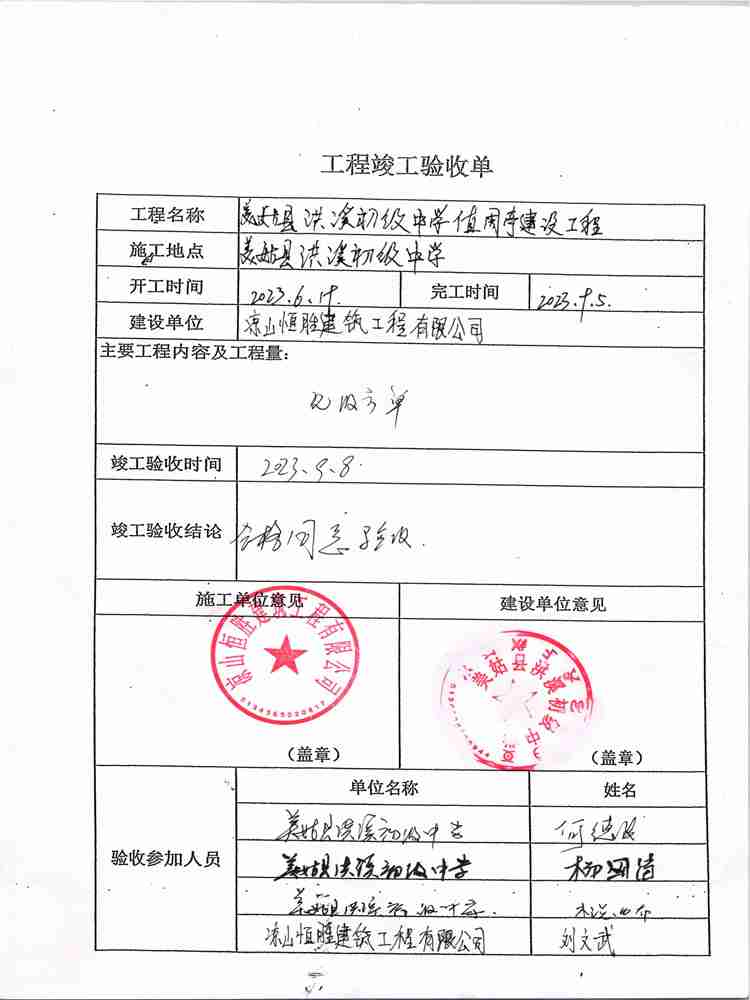 工程竣工验收单
工程名称 美姑县洪溪初级中学值周亭建设工程
施工地点 美姑县洪溪初级中学
开工时间 2023.6.19. 完工时间 2023.9.5.
建设单位 凉山恒胜建筑工程有限公司
主要工程内容及工程量：
见收方单
竣工验收时间 2023.9.8.
竣工验收结论 合格同意验收.
施工单位意见 建设单位意见
凉山恒胜建筑工程有限公司
美姑县洪溪初级中
（盖章） （盖章）
单位名称 姓名
美姑县洪溪初级中学 何德
验收参加人员 美姑县洪溪初级中学 柳国清
美姑县洪溪初级中学.
凉山恒胜建筑工程有限公司 刘文武